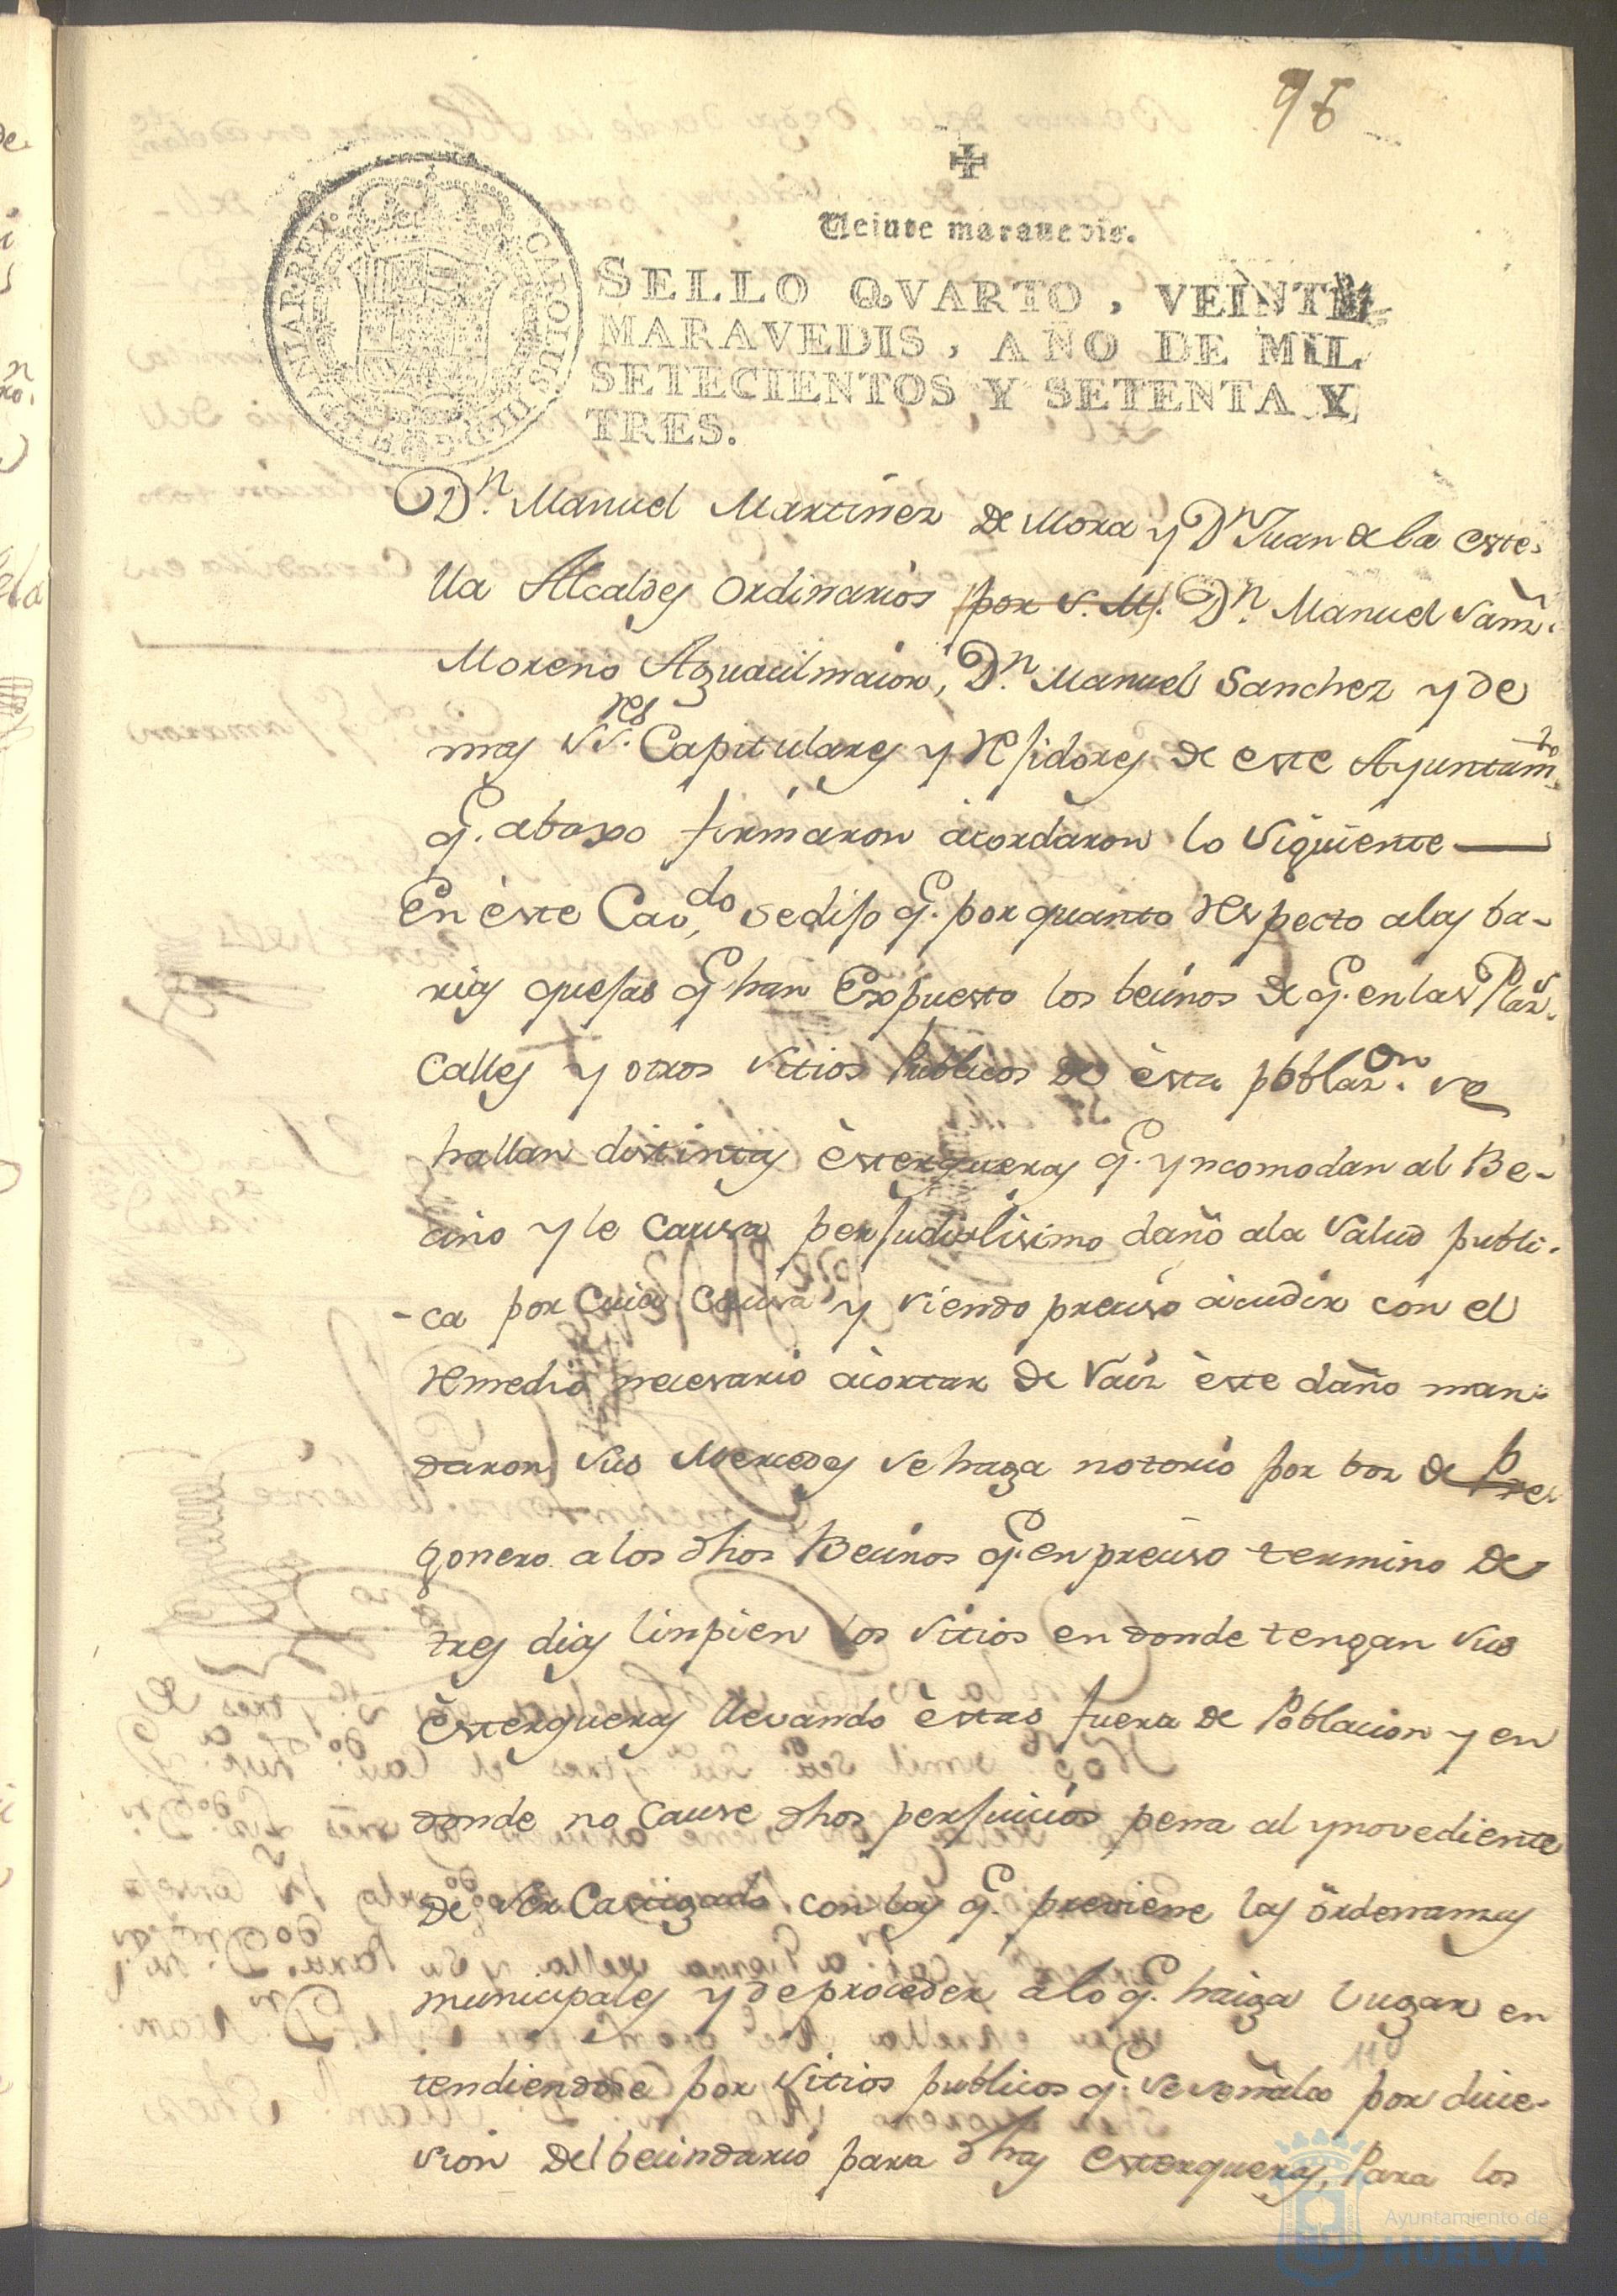 98
Veinte maravedis.
SELLO QVARTO, VEINTE
MARAVEDIS, AÑO DE MIL
SETECIENTOS Y SETENTA Y
TRES.
Dn. Manuel Martinez de Mora y Dn Juan de la Este-
lla Alcaldes ordinarios por S. M. Dn. Manuel Sanz.
Moreno Aguacilmaior, Dn. Manuel Sanchez y de
mas SS.res Capitulares y Rejidores de este Ayuntamto.
q. abaxo firmaron acordaron lo siguiente
En este Cavdo, se dijo q. por quanto respecto a las ba-
rias quejas q han Expuesto los becinos de q. en las Plazs.
Calles y otros sitios Publicos de esta poblazon. se
hallan distintas esterqueras q. yncomodan al Be-
cino y le causa perjudisilisimo daño a la salud publi-
-ca por cuia causa y siendo preciso acudir con el
remedio necesario acortar de raiz este daño man-
daron sus Mercedes se haga notorio por boz de Pre
gonero a los dhos Becinos q. en preciso termino de
tres dias linpien los sitios en donde tengan sus
esterqueras llevando estas fuera de Poblacion y en
donde no cause dhos perjuicios pena al ynovediente
de ser Castigado con las q. previene las ordenanzas
municipales y de proceder a lo q. haiga lugar en
tendiendose por sitios publicos q. se señala por dice-
sion del becindario para dhas esterqueras, Para los
Ayuntamiento de
HUELVA